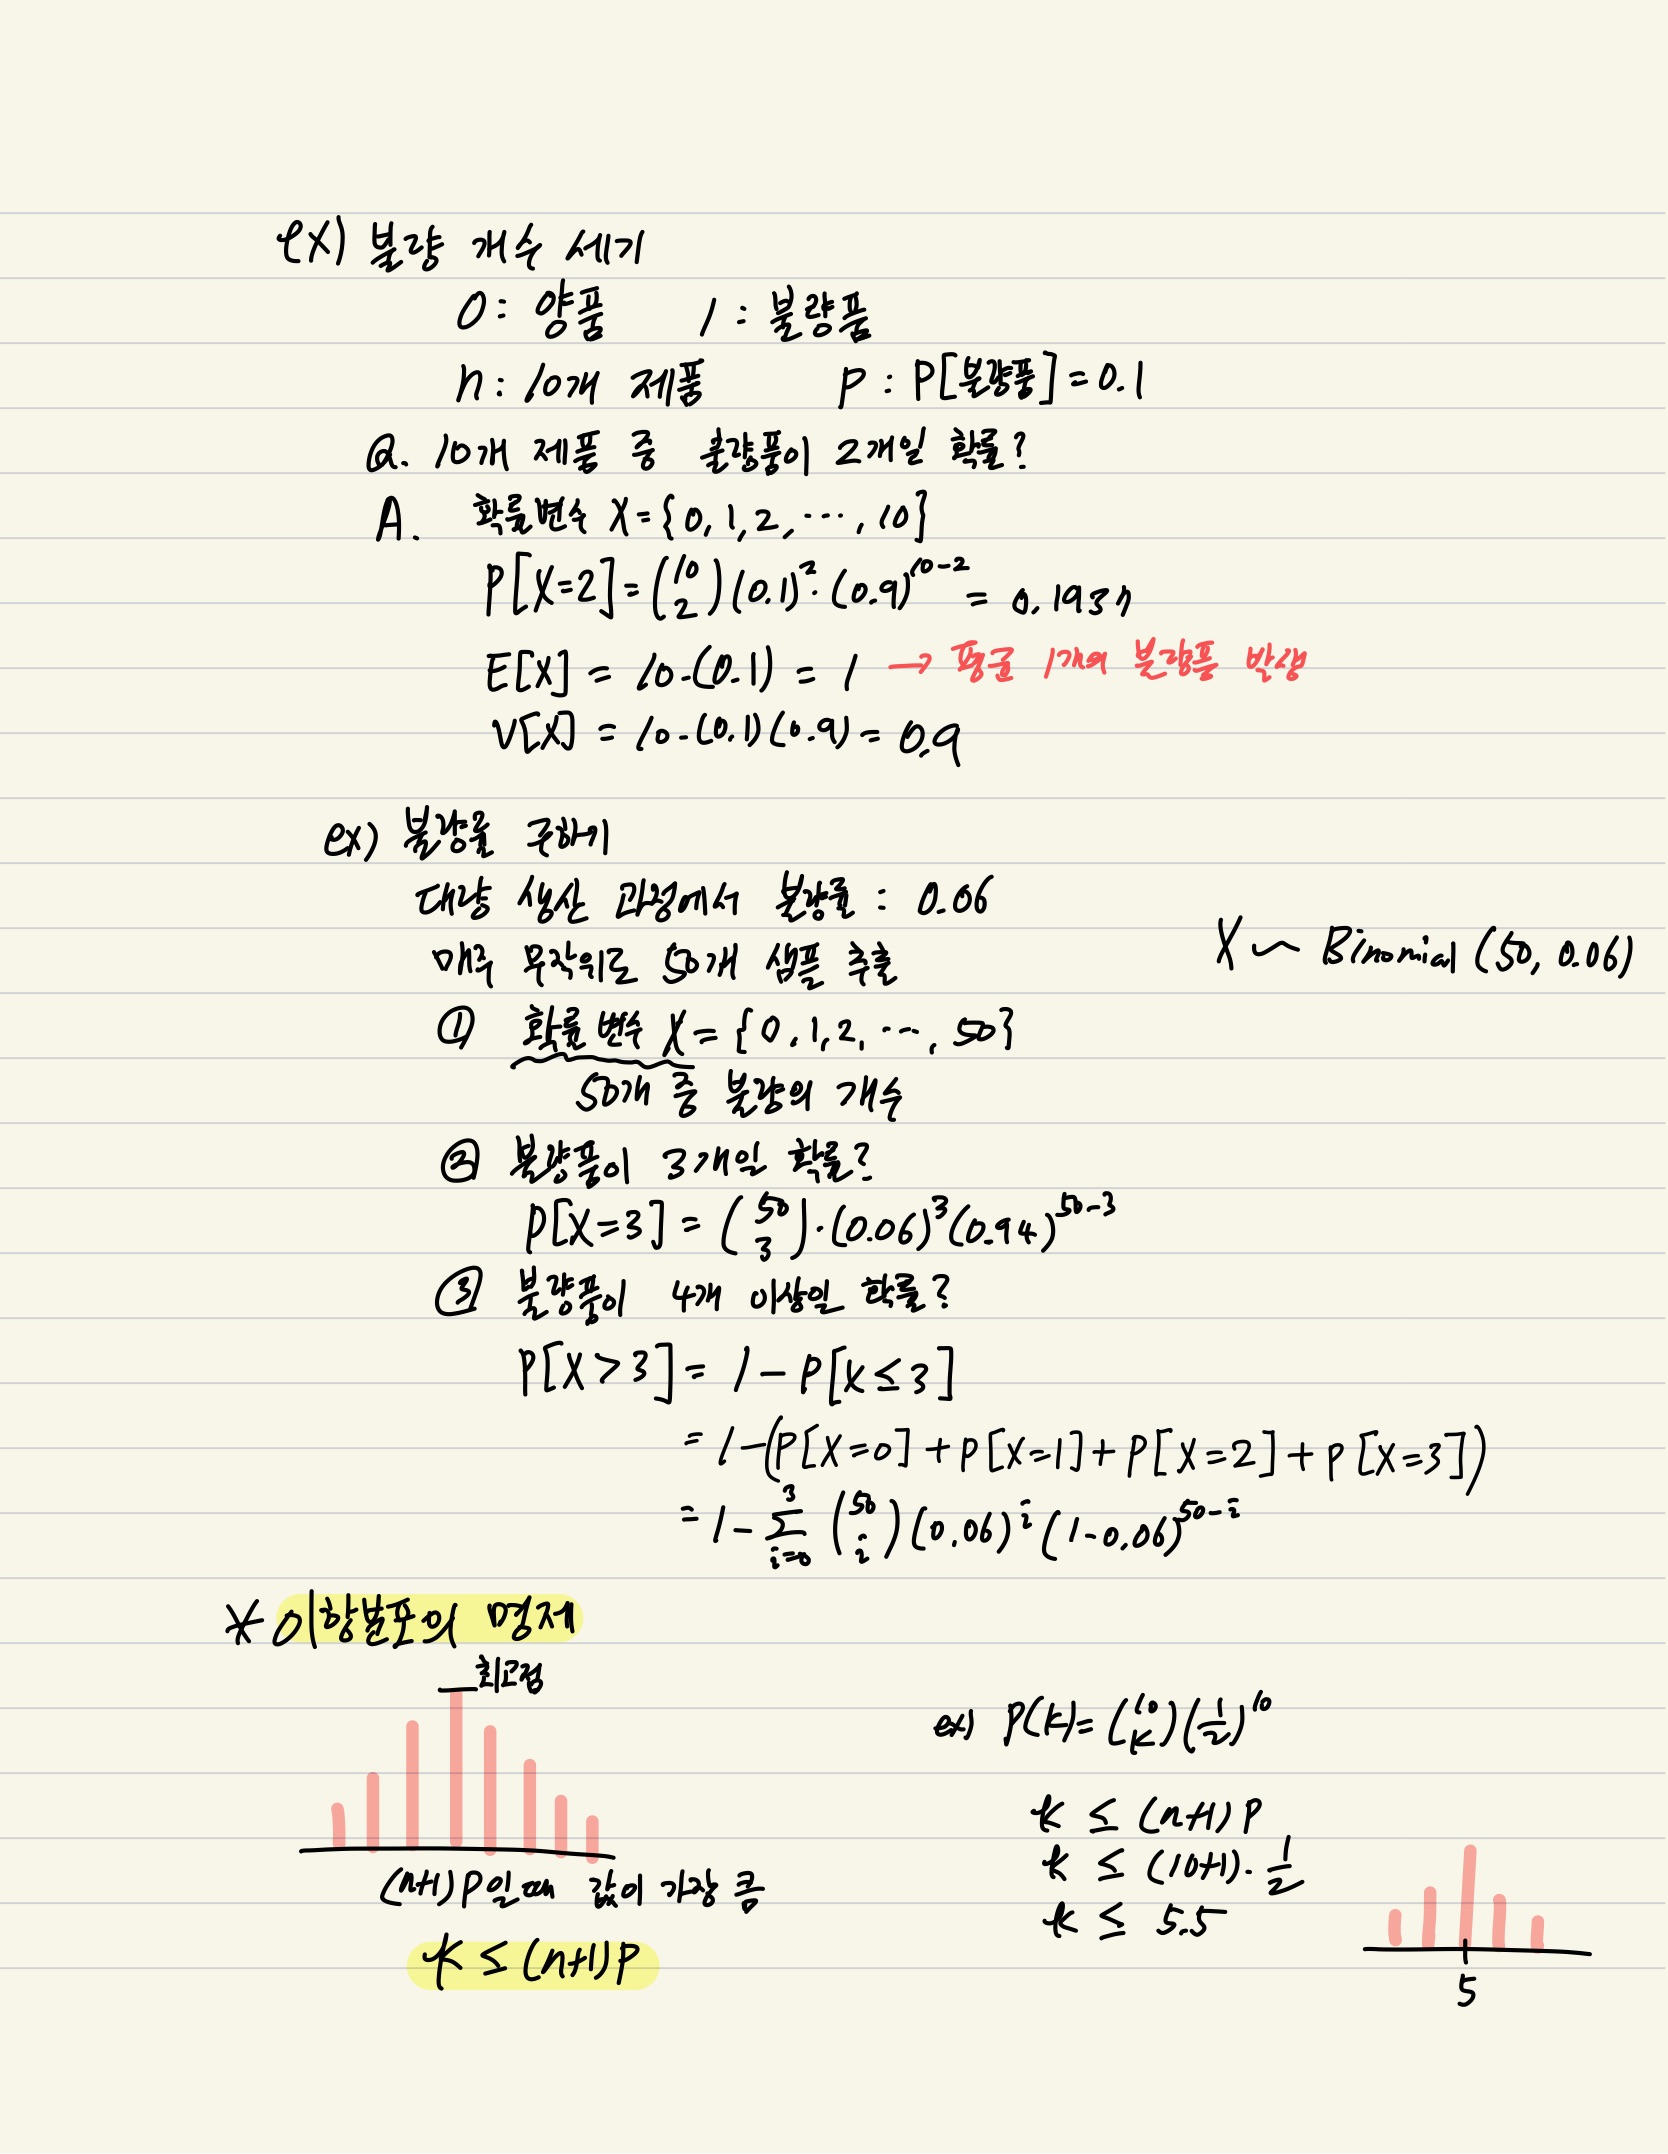 ex) 불량 개수 세기
0: 양품 1: 불량품
n: 10개 제품 p: P[불량품]=0.1
Q. 10개 제품 중 불량품이 2개일 확률?
A. 확률변수 X={0, 1, 2, ⋯, 10}
P[X=2]=(10 2)(0.1)²·(0.9)¹⁰⁻² = 0.1937
E[X] = 10·(0.1) = 1 → 평균 1개의 불량품 발생
V[X] = 10·(0.1)(0.9) = 0.9
ex) 불량률 구하기
대량 생산 과정에서 불량률 : 0.06
매주 무작위로 50개 샘플 추출 X ~ Binomial (50, 0.06)
① 확률 변수 X = {0, 1, 2, ⋯, 50}
50개 중 불량의 개수
② 불량품이 3개일 확률?
P[X=3] = (50 3)·(0.06)³(0.94)⁵⁰⁻³
③ 불량품이 4개 이상일 확률?
P[X>3] = 1 - P[X≤3]
= 1-(P[X=0]+P[X=1]+P[X=2]+P[X=3])
= 1-∑_{i=0}^{3} (50 i)(0.06)^i (1-0.06)^{50-i}
* 이항분포의 명제
최고점
(n+1)P일 때 값이 가장 큼
k ≤ (n+1)P
ex) P(k)=(10 k)(1/2)¹⁰
k ≤ (n+1)P
k ≤ (10+1)·1/2
k ≤ 5.5
5